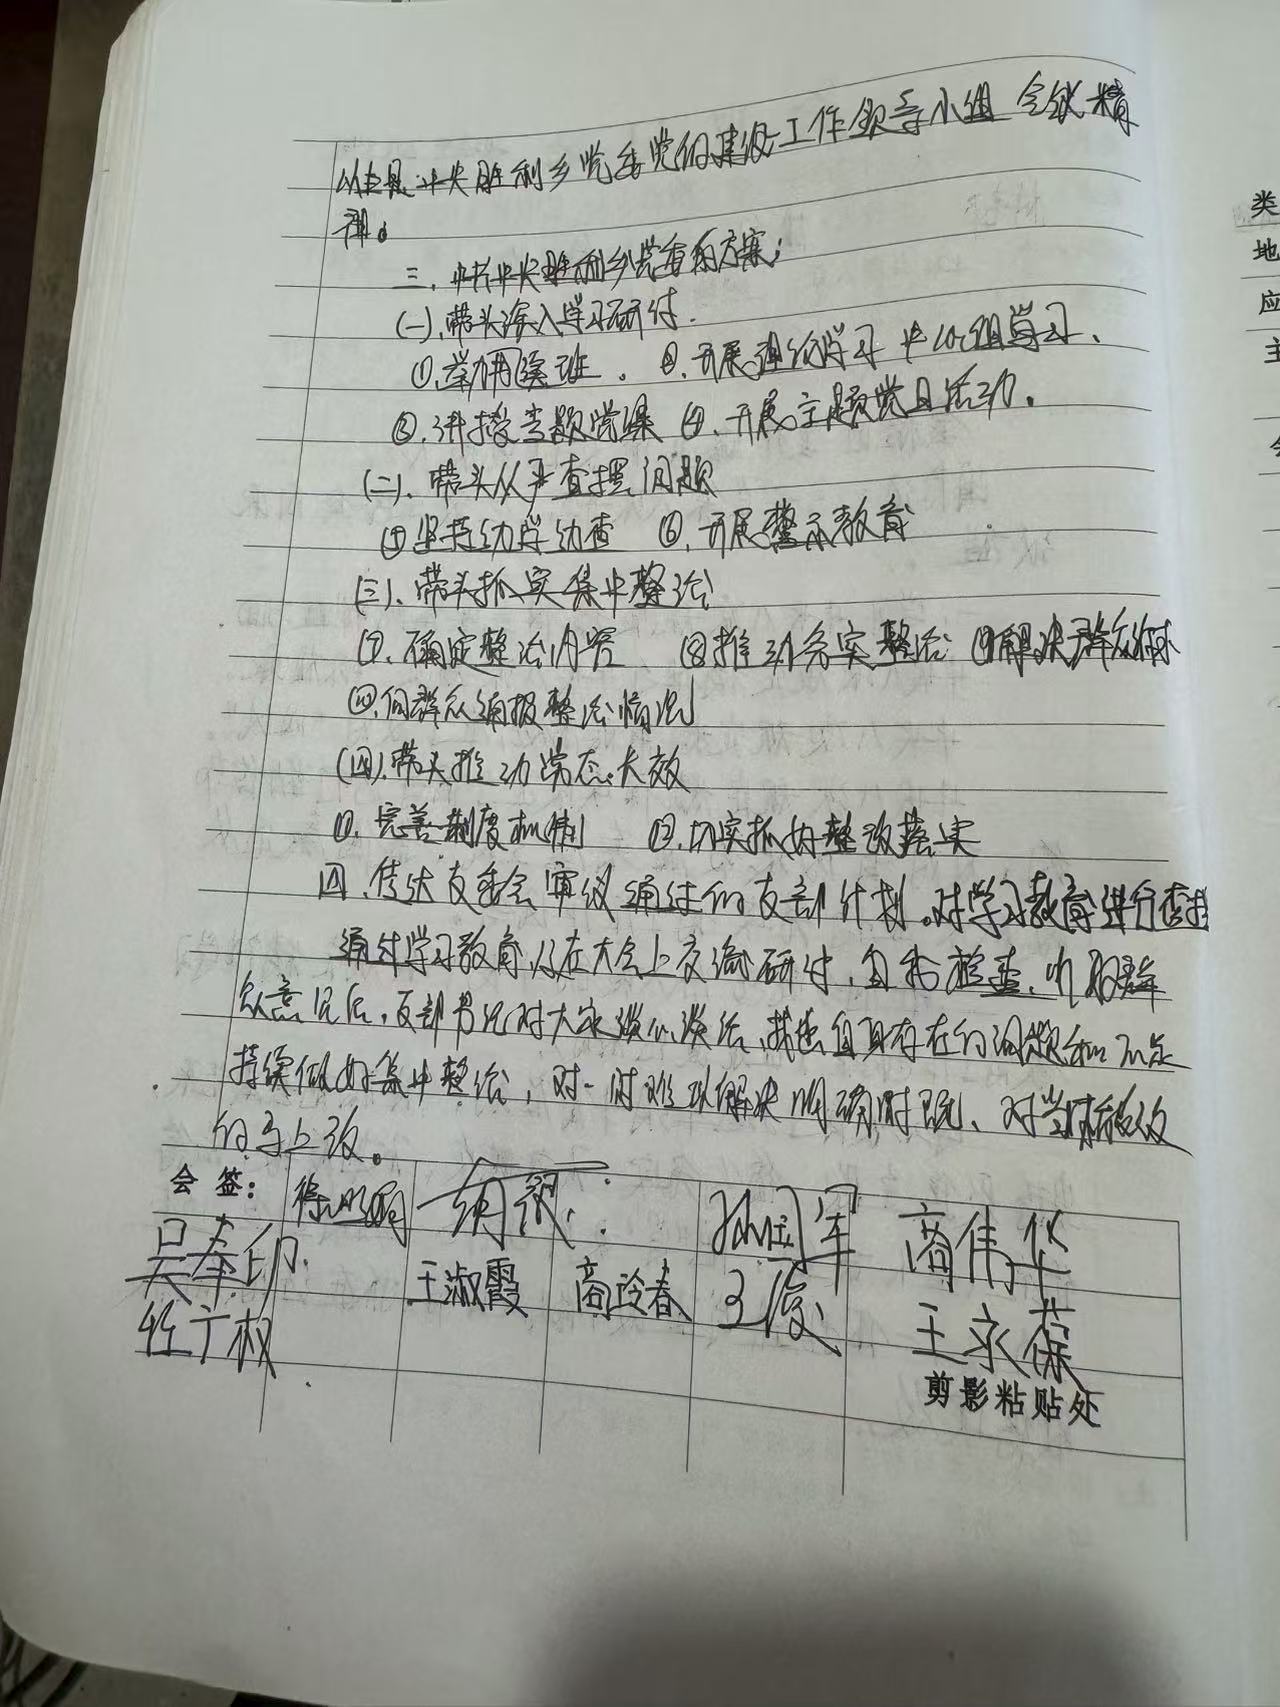 以及是中共胜利乡党委党的建设工作领导小组会议精
神。
三、中共胜利乡党委的方案:
(一)、带头深入学习研讨.
①、举办读班。②、开展理论学习中心组学习、
③、讲授专题党课 ④、开展主题党日活动。
(二)、带头从严查摆问题
⑤坚持边学边查 ⑥、开展警示教育
(三)、带头抓实集中整治
⑦、确定整治内容 ⑧推动务实整治 ⑨解决群众
⑩、向群众通报整治情况
(四)、带头推动常态长效
⑪、完善制度机制 ⑫、切实抓好整改落实
四、传达支委会审议通过的支部计划。对学习教育进行查摆
通过学习教育,及在大会上交流研讨,自我检查、听取群
众意见后,支部书记对大家谈心谈话,找出自身存在的问题和不足
持续做好集中整治,对一时难以解决明确时限、对当时能改
的马上改。
会签: 孙国军 商伟华
王淑霞 商玲春 王俊 王永葆
剪影粘贴处
类
地
应
主